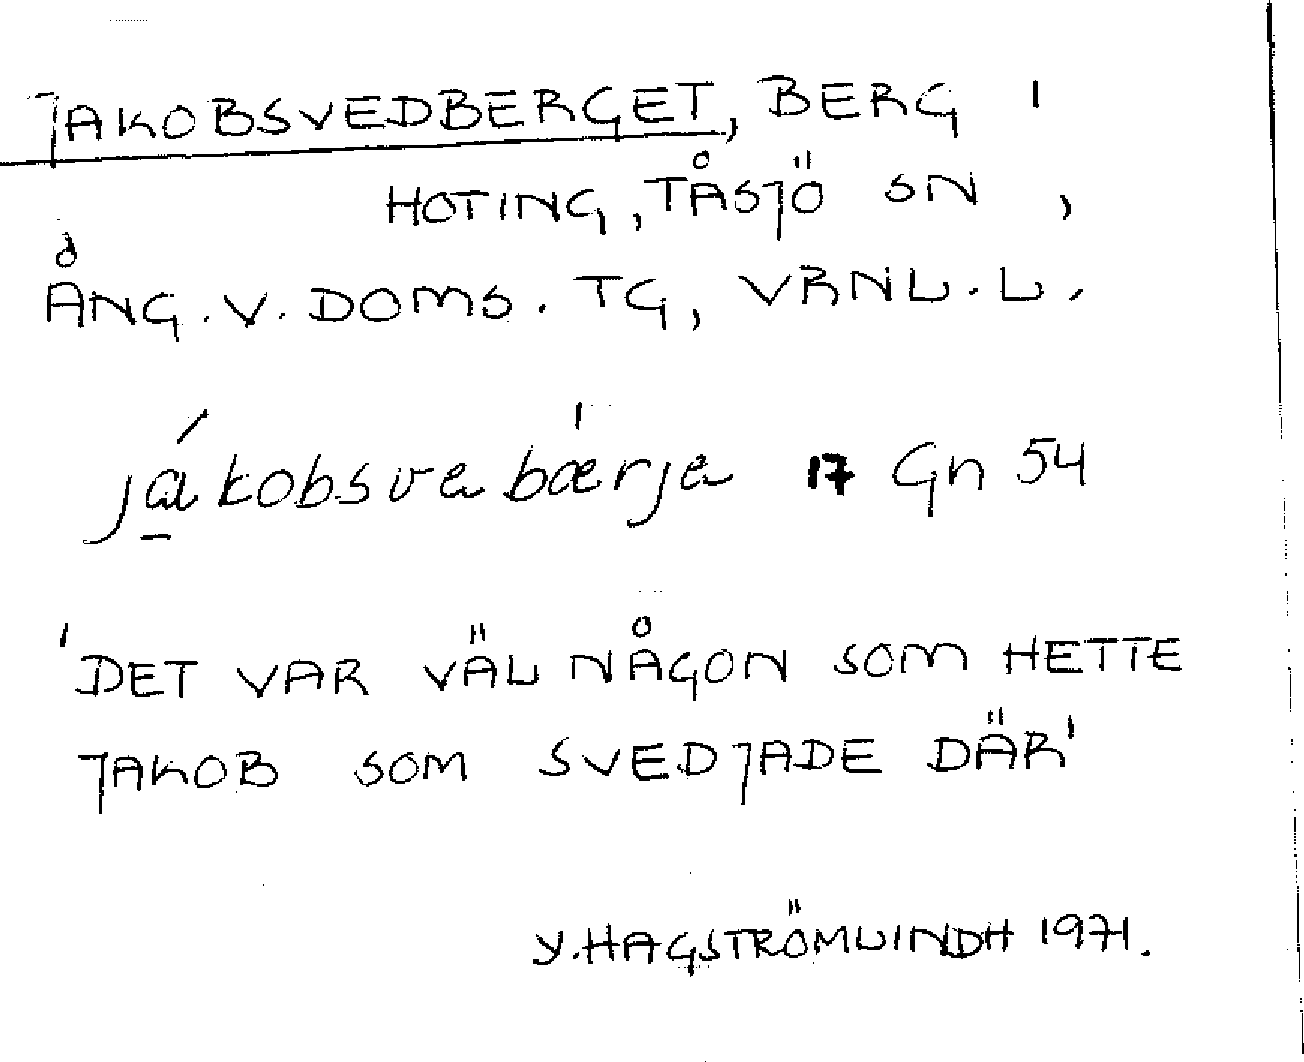 JAKOBSVEDBERGET, BERG I
HOTING, TÅSJÖ SN,
ÅNG. V. DOMS. TG, VRNL. L.
jákobsvebærje 17 Gn 54
'DET VAR VÄL NÅGON SOM HETTE
JAKOB SOM SVEDJADE DÄR'
Y. HAGSTRÖMLINDH 1971.